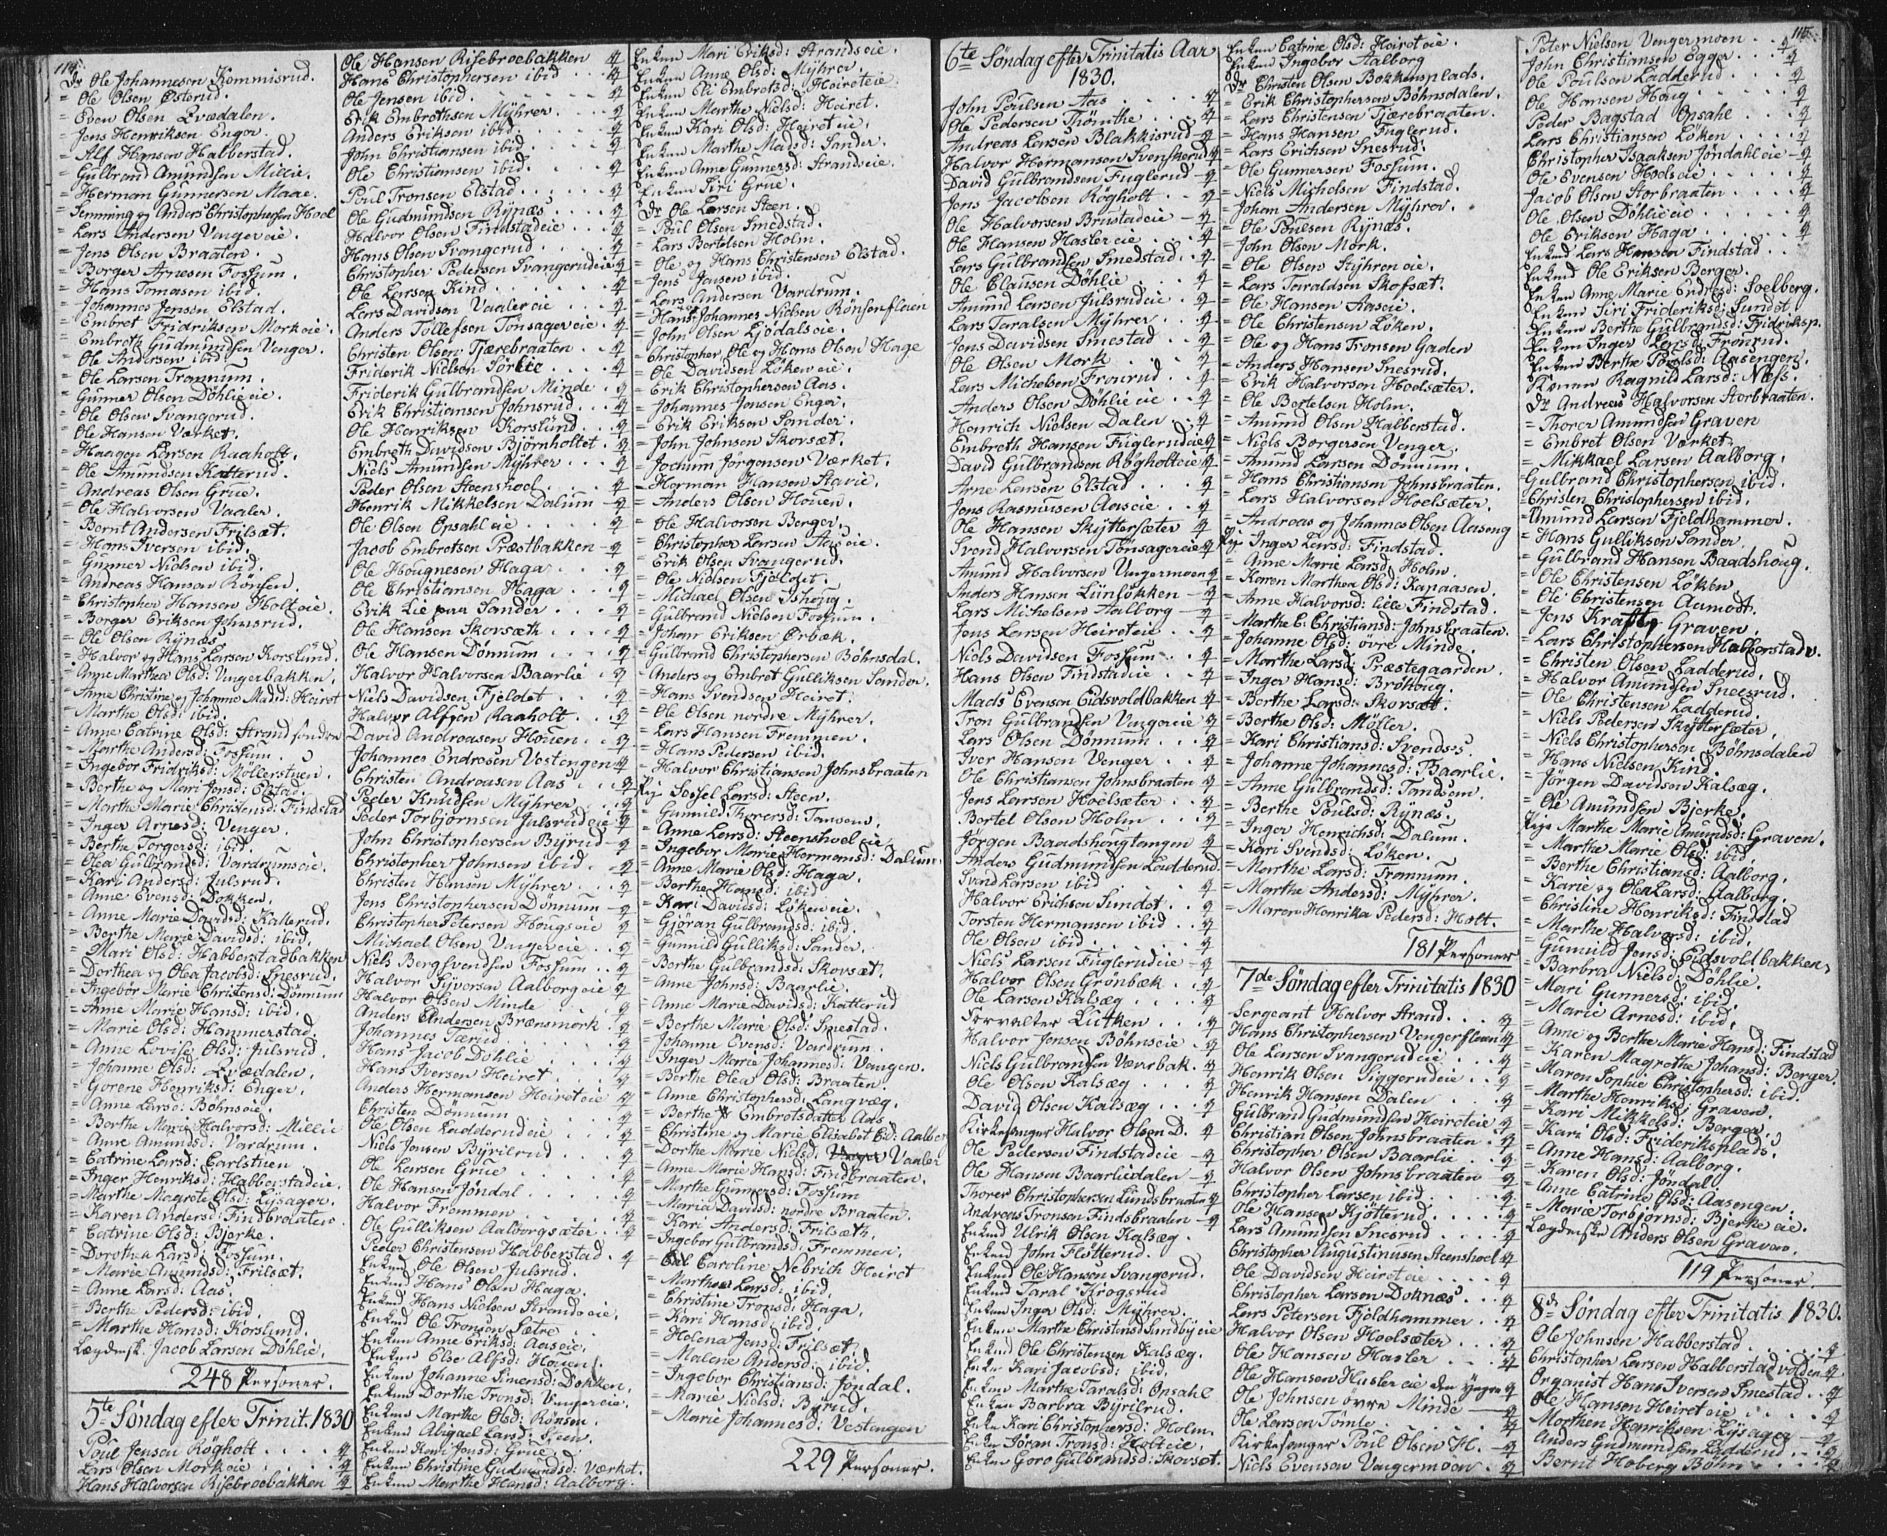 114.
Dr Ole Johannesen Kommisrud.
= Ole Olsen Østerud.
= Even Olsen Evedalen.
= Jens Henriksen Enger.
= Alf Hansen Halberstad.
= Gulbrand Amundsen Millie.
= Herman Gunnersen
= Lars Andersen Vengereie.
= Jens Olsen Braaten.
= Borger Arnesen Fossum.
= Hans Tomasen ibid.
= Johannes Jensen Elstad.
= Embret Fridriksen Morkeie.
= Embret Gudmundsen Venger.
= Ole Andersen ibid.
= Ole Larsen Tromnum.
= Gunner Olsen Döhlieeie.
= Ole Olsen Svangerud.
= Ole Hansen Værket.
= Haagen Larsen Raaholt.
= Ole Amundsen Katterud.
= Andreas Olsen Grue.
= Ole Halvorsen Vaaler.
= Bernt Andersen Frilsæt.
= Hans Iversen ibid.
= Gunner Nielsen ibid.
= Andreas Hansen Rönsen.
= Christopher Hansen Holteie.
= Borger Eriksen Johnsrud.
= Ole Olsen Rÿnæs.
= Halvor og Hans Larsen Korslund.
= Anne Marthea Olsd: Vengerbakken.
= Anne Christine og Johanne Madsd: Heiret
= Marthe Olsd: ibid.
= Anne Catrine Olsd:
= Marthe Andersd: Fossum.
= Ingebor Fridriksd: Möllerstuen.
= Berthe og Mari Jensd: Elstad.
= Marthe Marie Christensd: Findstad
= Inger Arnesd: Venger.
= Berthe Torgersd: ibid.
= Olea Gulbrandsd: Vardrumseie.
= Kari Andersd: Julsrud.
= Anne Evensd: Dokken.
= Anne Marie Davidsd: Katterud.
= Berthe Marie Davidsd: ibid.
= Mari Olsd: Habberstadbakken
= Dorthea og Olea Jacobsd: Snesrud.
= Ingebor Marie Christensd: Dönnum
= Anne Marie Hansd: ibid.
= Marie Olsd: Hammerstad.
= Anne Lovise Olsd: Julsrud.
= Johanne Olsd: Evedalen.
= Gorene Henriksd: Enger.
= Anne Larsd: Böhnseie.
= Berthe Marie Halvorsd: Millie
= Anne Amundsd: Vardrum.
= Catrine Larsd: Carlstuen.
= Inger Henriksd: Habberstadeie.
= Marthe Magrete Olsd: Lÿsager.
= Karen Andersd: Findbraaten.
= Catrine Olsd: Bjerke.
= Dorthea Larsd: Fossum.
= Marie Amundsd: Frilsæt.
= Anne Larsd: Aas.
= Berthe Pedersd: ibid.
= Marthe Hansd: Korslund.
Lægdsm: Jacob Larsen Döhlie.
248 Personer.
5te Söndag efter Trinit. 1830
Poul Jensen Rögholt
Lars Olsen Morkeie
Hans Halvorsen Risebroebakken
Ole Hansen Risebroebakken
Hans Christophersen ibid
Ole Jensen ibid.
Erik Embrethsen Mÿhrer
Anders Eriksen ibid.
John Christiansen ibid.
Ole Christiansen ibid.
Poul Tronsen Elstad
Ole Gudmundsen Rÿnæs
Halvor Olsen Findstadeie
Hans Olsen Svangerud
Christopher Pedersen Svangerudeie
Ole Larsen Kind
Lars Davidsen Vaalereie
Anders Tollefsen Tönsagereie
Christen Olsen Tjærebraaten
Friderik Nielsen Sörlie
Friderik Gulbrandsen Minde
Erik Christiansen Johnsrud
Ole Henriksen Korslund
Embreth Davidsen Björnholtet
Niels Amundsen Mÿhrer
Peder Olsen Steenshoel
Henrik Mikkelsen Dalum
Ole Olsen Opsahleie
Jacob Embretsen Præstbakken
Ole Haagnesen Haga
Ole Christiansen Haga
Erik Lie paa Sander
Ole Hansen Skovsæth
Ole Hansen Dönnum
Halvor Halvorsen Baarlie
Niels Davidsen Fjeldet
Halvor Alfsen Raaholt
David Andreasen Houen
Johannes Endresen Vestengen
Christen Andreasen Aas
Peder Knudsen Mÿhrer
Peder Torbjörnsen Julsrudeie
John Christophersen Bÿrud
Christopher Johnsen ibid
Christen Hansen Mÿhrer
Jens Christophersen Dönnum
Christopher Petersen Hougseie
Michael Olsen Vengereie
Niels Berg Svendsen Fossum
Halvor Sÿversen Aalborgeie
Halvor Olsen Minde
Anders Andersen Brænsmork
Johannes Tærud
Hans Jacob Döhlie
Hans Iversen Heiret
Anders Hermansen Heireteie
Christen Dönnum
Ole Olsen Ladderudeie
Niels Jensen Bÿrilrud
Ole Larsen Grue
Ole Hansen Jöndal
Halvor Fremmen
Ole Gulliksen Aalborgsæter
Peder Christensen Habberstad
Enkem Ole Olsen Julsrud.
Enkem Hans Olsen Haga.
Enkem Hans Nielsen Strandeeie.
Enkem Ole Tronsen Sætre
Enken Anne Eriksd: Aaseie.
Enken Else Alfsd: Houen.
Enken Johanne Simensd: Dokken.
Enken Dorthe Tronsd: Vengereie.
Enken Marthe Olsd: Rönsen.
Enken Abigael Larsd: Steen.
Enken Kari Jensd: Grue.
Enken Christine Gudmundsd: Værket.
Enken Marthe Hansd: Aalborg.
Enken Mari Eriksd: Strandseie.
Enken Anne Olsd: Mÿhrer.
Enken Eli Embretsd: Heireteie.
Enken Marthe Nielsd: Heiret.
Enken Kari Olsd: Heireteie.
Enken Marthe Madsd: Sander.
Enken Anne Gunnersd: Strandseie.
Enken Siri Grue.
Dr Ole Larsen Steen.
= Poul Olsen Smedstad.
= Lars Bertelsen Holm.
= Ole og Hans Christensen Elstad.
= Jens Jensen ibid.
= Lars Andersen Vardrum.
= Hans Johannes Nielsen Rönsenfloen
= John Olsen Ljödalseie.
= Christopher Ole og Hans Olsen Hage
= Ole Davidsen Lökeneie.
= Erik Christophersen Aas.
= Johannes Jensen Enger.
= Erik Eriksen Sander.
= John Johnsen Skovsæt.
= Jochum Jörgensen Værket.
= Herman Hansen Stavie.
= Anders Olsen Houen.
= Ole Halvorsen Berger.
= Christopher Larsen Aaseie.
= Erik Olsen Svangerud.
= Ole Nielsen Fjeldet.
= Michael Olsen
= Gulbrand Nielsen Fossum.
= Johan Eriksen Ørbæk.
= Gulbrand Christophersen Böhnsdal.
= Anders og Embret Gulliksen Sander.
= Hans Svendsen Heiret.
= Ole Olsen nordre Mÿhrer.
= Lars Hansen Fremmen.
= Hans Pedersen ibid.
= Halvor Christiansen Johnsbraaten
Pige Sissel Larsd: Steen.
= Gunnild Thorersd: Tansem.
= Anne Larsd: Steenshoeleie
= Ingebor Marie Hermansd: Dalum
= Anne Marie Olsd: Haga.
= Berthe Hansd: ibid.
= Kari Davidsd: Lökeneie.
= Gjöran Gulbrandsd: ibid.
= Gunnild Gulliksd: Sander.
= Berthe Gulbrandsd: Skovsæt.
= Anne Johnsd: Baarlie.
= Anne Marie Davidsd: Katterud
= Berthe Marie Olsd: Smestad.
= Johanne Evensd: Vardrum.
= Inger Marie Johannesd: Vengen.
= Berthe Olea Olsd: Braaten.
= Anne Christophersd: Langvæg.
= Berthe Embretsdatter Aas
= Christine og Marie Elisabet Ed: Aalberg
= Dorthe Marie Nielsd: Vaaler
= Anne Marie Hansd: Findbraaten.
= Marthe Gunnersd: Fossum
= Maria Davidsd: nordre Braaten.
= Kari Andersd: Frilsæth.
= Ingebor Gulbrandsd: Fremmen.
= Caroline Nebrich Heiret
= Marthea Larsd: ibid.
= Christine Tronsd: Haga.
= Kari Hansd: ibid.
= Helena Jensd: Frilsæt.
= Malene Andersd: ibid.
= Ingebor Christiansd: Jöndal.
= Marie Nielsd: Bÿrud.
= Marie Johannesd: Vestengen
229 Personer.
115.
6te Söndag efter Trinitatis Aar
1830.
John Poulsen Aas
Ole Pedersen Trönthe
Andreas Larsen Blakkisrud
Halvor Hermansen Svenskerud
David Gulbrandsen Fuglerud
Jens Jacobsen Rögholt
Ole Halvorsen Brustadeie
Ole Hansen Haslereie
Lars Gulbrandsen Smedstad
Ole Clausen Döhlie
Amund Larsen Julsrudeie
Lars Taralsen Mÿhrer
Jens Davidsen Smestad
Ole Olsen Mork
Lars Michelsen Fronrud
Anders Olsen Döhlieeie
Henrich Nielsen Dalen
Embreth Hansen Fuglerudeie
David Gulbrandsen Rögholteie
Arne Larsen Elstad
Jens Rasmusen Aaseie
Ole Hansen Skÿttersæter
Svend Halvorsen Tönsagereie
Amund Halvorsen Vengermoen
Anders Hansen Lundlökken
Lars Michelsen Aalborg
Jens Larsen Heireteie
Niels Davidsen Fossum
Hans Olsen Findstadeie
Mads Evensen Eidsvoldbakken
Tron Gulbrandsen Vengereie
Lars Olsen Dönnum
Iver Hansen Venger
Ole Christiansen Johnsbraaten
Jens Larsen Hoelsæter
Bertel Olsen Holm
Jörgen Baadshaugtangen
Anders Gudmundsen Ladderud
Svend Larsen ibid
Halvor Erichsen Sundet
Torsten Hermansen ibid
Ole Olsen ibid.
Niels Larsen Fuglerudeie
Halvor Olsen Grönbæk
Ole Larsen Kalsæg
Forvalter Lutken
Halvor Jensen Böhnseie
Niels Gulbrandsen Værsbak
Ole Olsen Kalsæg
David Olsen Kalsæg
Kirkesanger Halvor Olsen D.
Ole Pedersen Findstadeie
Ole Hansen Baarliedalen
Thorer Christophersen Lundsbraaten
Andreas Tronsen Findsbraaten
Enkem Ulrik Olsen Kalsæg.
Enkem John Flötterud.
Enkem Ole Hansen Svangerud.
Enkem Taral Krogsrud
Enken Inger Olsd: Mÿhrer.
Enken Marthe Christensd Sundbÿeie
Enkem Ole Christensen Kalsæg.
Enken Kari Jacobsd: ibid.
Enken Marthe Taralsd: Opsahl
Enken Barbra Bÿrilrud.
Enken Kari Christophersd: Holm.
Enken Göran Tronsd: Holteie.
Enken Goro Gulbrandsd: Skovsæt.
Enken Catrine Olsd: Heireteie.
Enken Ingebor Aalborg
Dr Christen Olsen Bokkensplads.
= Erik Christophersen Böhnsdalen.
= Lars Christensen Tjærebraaten.
= Hans Hansen Fuglerud.
= Lars Erichsen Snesrud.
= Ole Gunnersen Fossum.
= Niels Michelsen Findstad.
= Johan Andersen Mÿhrer.
= Ole Poulsen Rÿnæs.
= John Olsen Mork.
= Ole Olsen Stÿhreneie.
= Lars Taraldsen Skofsæt.
= Ole Hansen Aaseie.
= Ole Christensen Löken.
= Ole og Hans Tronsen Gaden
= Anders Hansen Snesrud.
= Erik Halvorsen Hoelsæter.
= Ole Bertelsen Holm.
= Amund Olsen Halberstad.
= Niels Borgersen Venger.
= Amund Larsen Dönnum.
= Hans Christiansen Johnsbraaten.
= Lars Halvorsen Hoelsæter.
= Andreas og Johannes Olsen Aaseng
Pige Inger Larsd: Findstad.
= Anne Marie Larsd: Holm.
= Karen Marthea Olsd: Kanaasen.
= Anne Halvorsd: lille Findstad.
= Marthe E: Christiansd: Johnsbraaten.
= Johanne Olsd: øvre Minde.
= Marthe Larsd: Præstegaarden.
= Inger Hansd: Bröhoug.
= Berthe Larsd: Skovsæt.
= Berthe Olsd: Möller.
= Kari Christiansd: Svendsес.
= Johanne Johannesd: Baarlie.
= Anne Gulbrandsd: Tandsem.
= Berthe Poulsd: Rÿnæs.
= Inger Henrichsd: Dalum.
= Kari Svendsd: Löken.
= Marthe Larsd: Tromnum.
= Marthe Andersd: Mÿhrer.
= Maren Henrika Pedersd: Holt.
181 Personer
7de Söndag efter Trinitatis 1830
Sergeant Halvor Strand
Hans Christophersen Vengerfloen
Ole Larsen Svangerudeie
Henrik Olsen Siggerudeie
Henrik Hansen Dalen
Gulbrand Gudmundsen Heireteie
Christian Olsen Johnsbraaten
Christopher Olsen Baarlie
Halvor Olsen Johnsbraaten
Christopher Larsen ibid
Ole Hansen Kjötterud
Lars Amundsen Snesrud
Christopher Augustinusen Steenshoel
Ole Davidsen Heireteie
Christopher Larsen Doknæs
Lars Petersen Fjeldhammer
Halvor Olsen Hoelsæter
Ole Hansen Hasler
Ole Hansen Haslereie den yngre
Ole Johnsen øvre Minde
Ole Larsen Tomle
Kirkesanger Poul Olsen H.
Niels Evensen Vengermoen
Peter Nielsen Vengermoen
John Christiansen Egger
Ole Poulsen Ladderud
Ole Hansen Houg
Peder Bagstad Opsahl
Lars Christiansen Löken
Christopher Isaaksen Jöndahleie
Ole Evensen Hoelseie
Jacob Olsen Storbraaten
Ole Olsen Döhlieeie
Ole Eriksen Haga
Enkem Lars Hansen Findstad
Enkem Ole Eriksen Berger.
Enken Anne Marie Endresd: Soelberg.
Enken Siri Frideriksd: Sundet.
Enken Berthe Gulbrandsd: Fridriksp.
Enken Inger Larsd: Fronrud.
Enken Berthe Poulsd: Aasengen.
Enken Ragnild Larsd: Næss.
Dr Andreas Halvorsen Storbraaten.
= Thorer Amundsen Graven
= Embret Olsen Værket
= Mikkael Larsen Aalborg.
Gulbrand Christophersen ibid.
Christen Christophersen ibid.
= Amund Larsen Fjeldhammer.
= Hans Gulliksen Sander.
= Gulbrand Hansen Baadshoug.
= Ole Christensen Löken
= Ole Christensen Aamodt.
= Jens Kraft Graven.
= Lars Christophersen Halberstad.
= Christen Olsen Ladderud.
= Halvor Amundsen Sneesrud.
= Ole Christensen Ladderud
= Niels Pedersen Skÿttersæter.
= Niels Christophersen Böhnsdalen
= Hans Nielsen Kind
= Jörgen Davidsen Kalsæg.
= Ole Amundsen Bjerke.
Pige Marthe Marie Amundsd: Graven.
= Marthe Marie Olsd: ibid
= Berthe Christiansd: Aalborg.
= Karie og Olea Larsd: Aalborg.
= Christine Henriksd: Findstad
= Marthe Halvorsd: ibid.
= Gunnild Jensd: Eidsvoldbakken
= Barbra Nielsd: Döhlie.
= Mari Gunnersd: ibid.
= Marie Arnesd: ibid.
= Anne og Berthe Marie Hansd: Findstad
= Karen Magrethe Johansd: Berger.
= Maren Sophie Christophersd: ibid.
= Marthe Henriksd: Graven.
= Kari Mikkelsd: Berger.
= Kari Olsd: Frideriksplads.
= Anne Hansd: Aalborg.
= Karen Olsd: Jöndal.
= Anne Catrine Olsd: Aasengen.
= Marie Torbjörnsd: Bjerkeeie.
Lægdmske Anders Olsen Graven.
119 Personer.
8de Söndag efter Trinitatis 1830.
Ole Johnsen Habberstad
Christopher Larsen Halberstadvolden
Organist Hans Iversen Smestad
Ole Hansen Heireteie
Morthen Henriksen Lÿsager
Anders Gudmundsen Ladderud
Bernt Hoberg Böhn